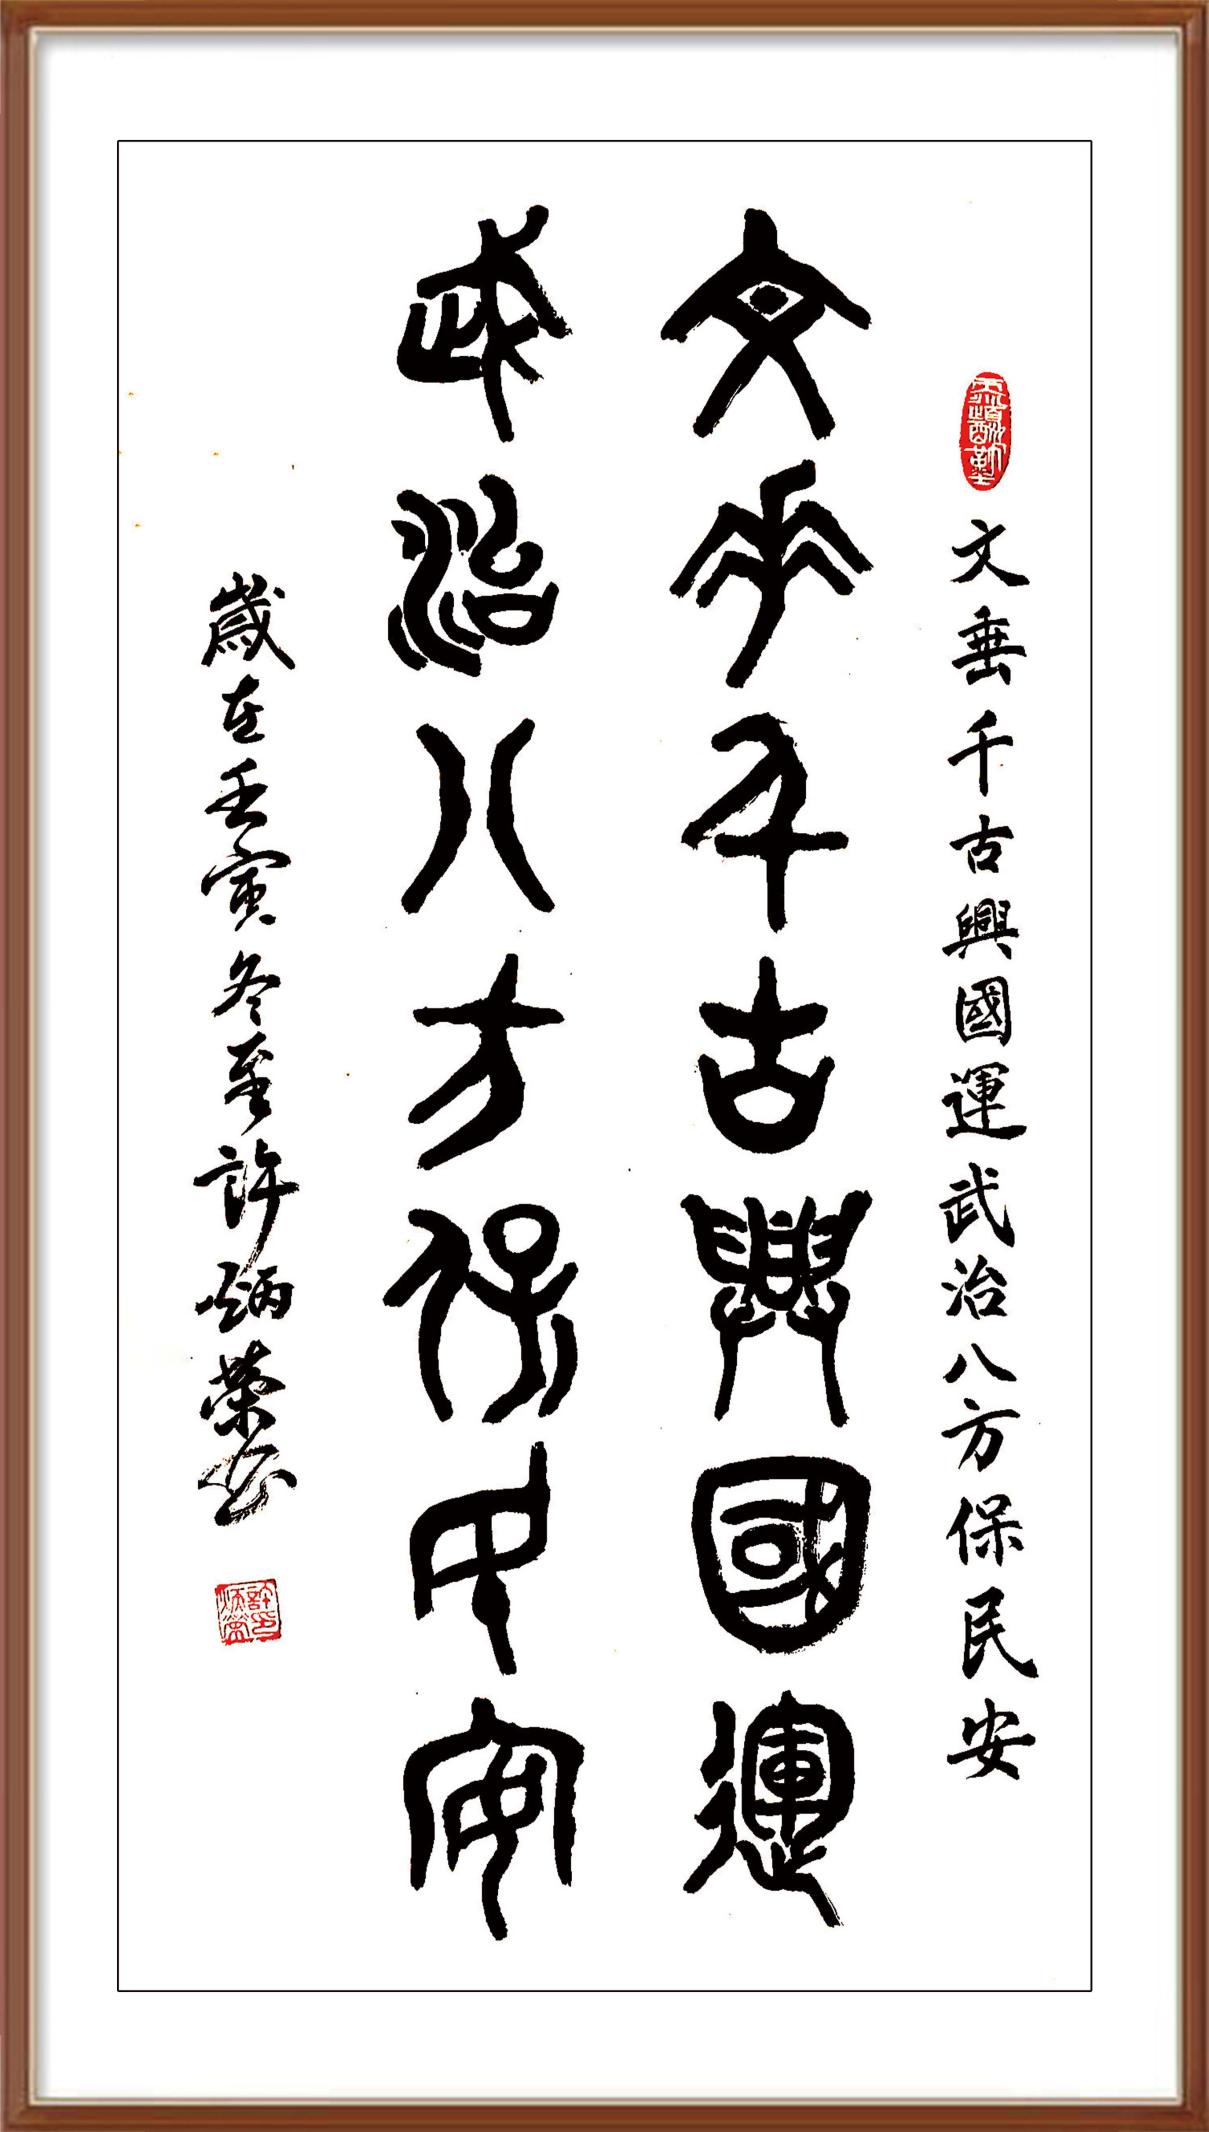 文垂千古興國運武治八方保民安
文垂千古興國運
武治八方保民安
歲在壬寅冬至許炳榮書
天道酬勤
許炳榮印